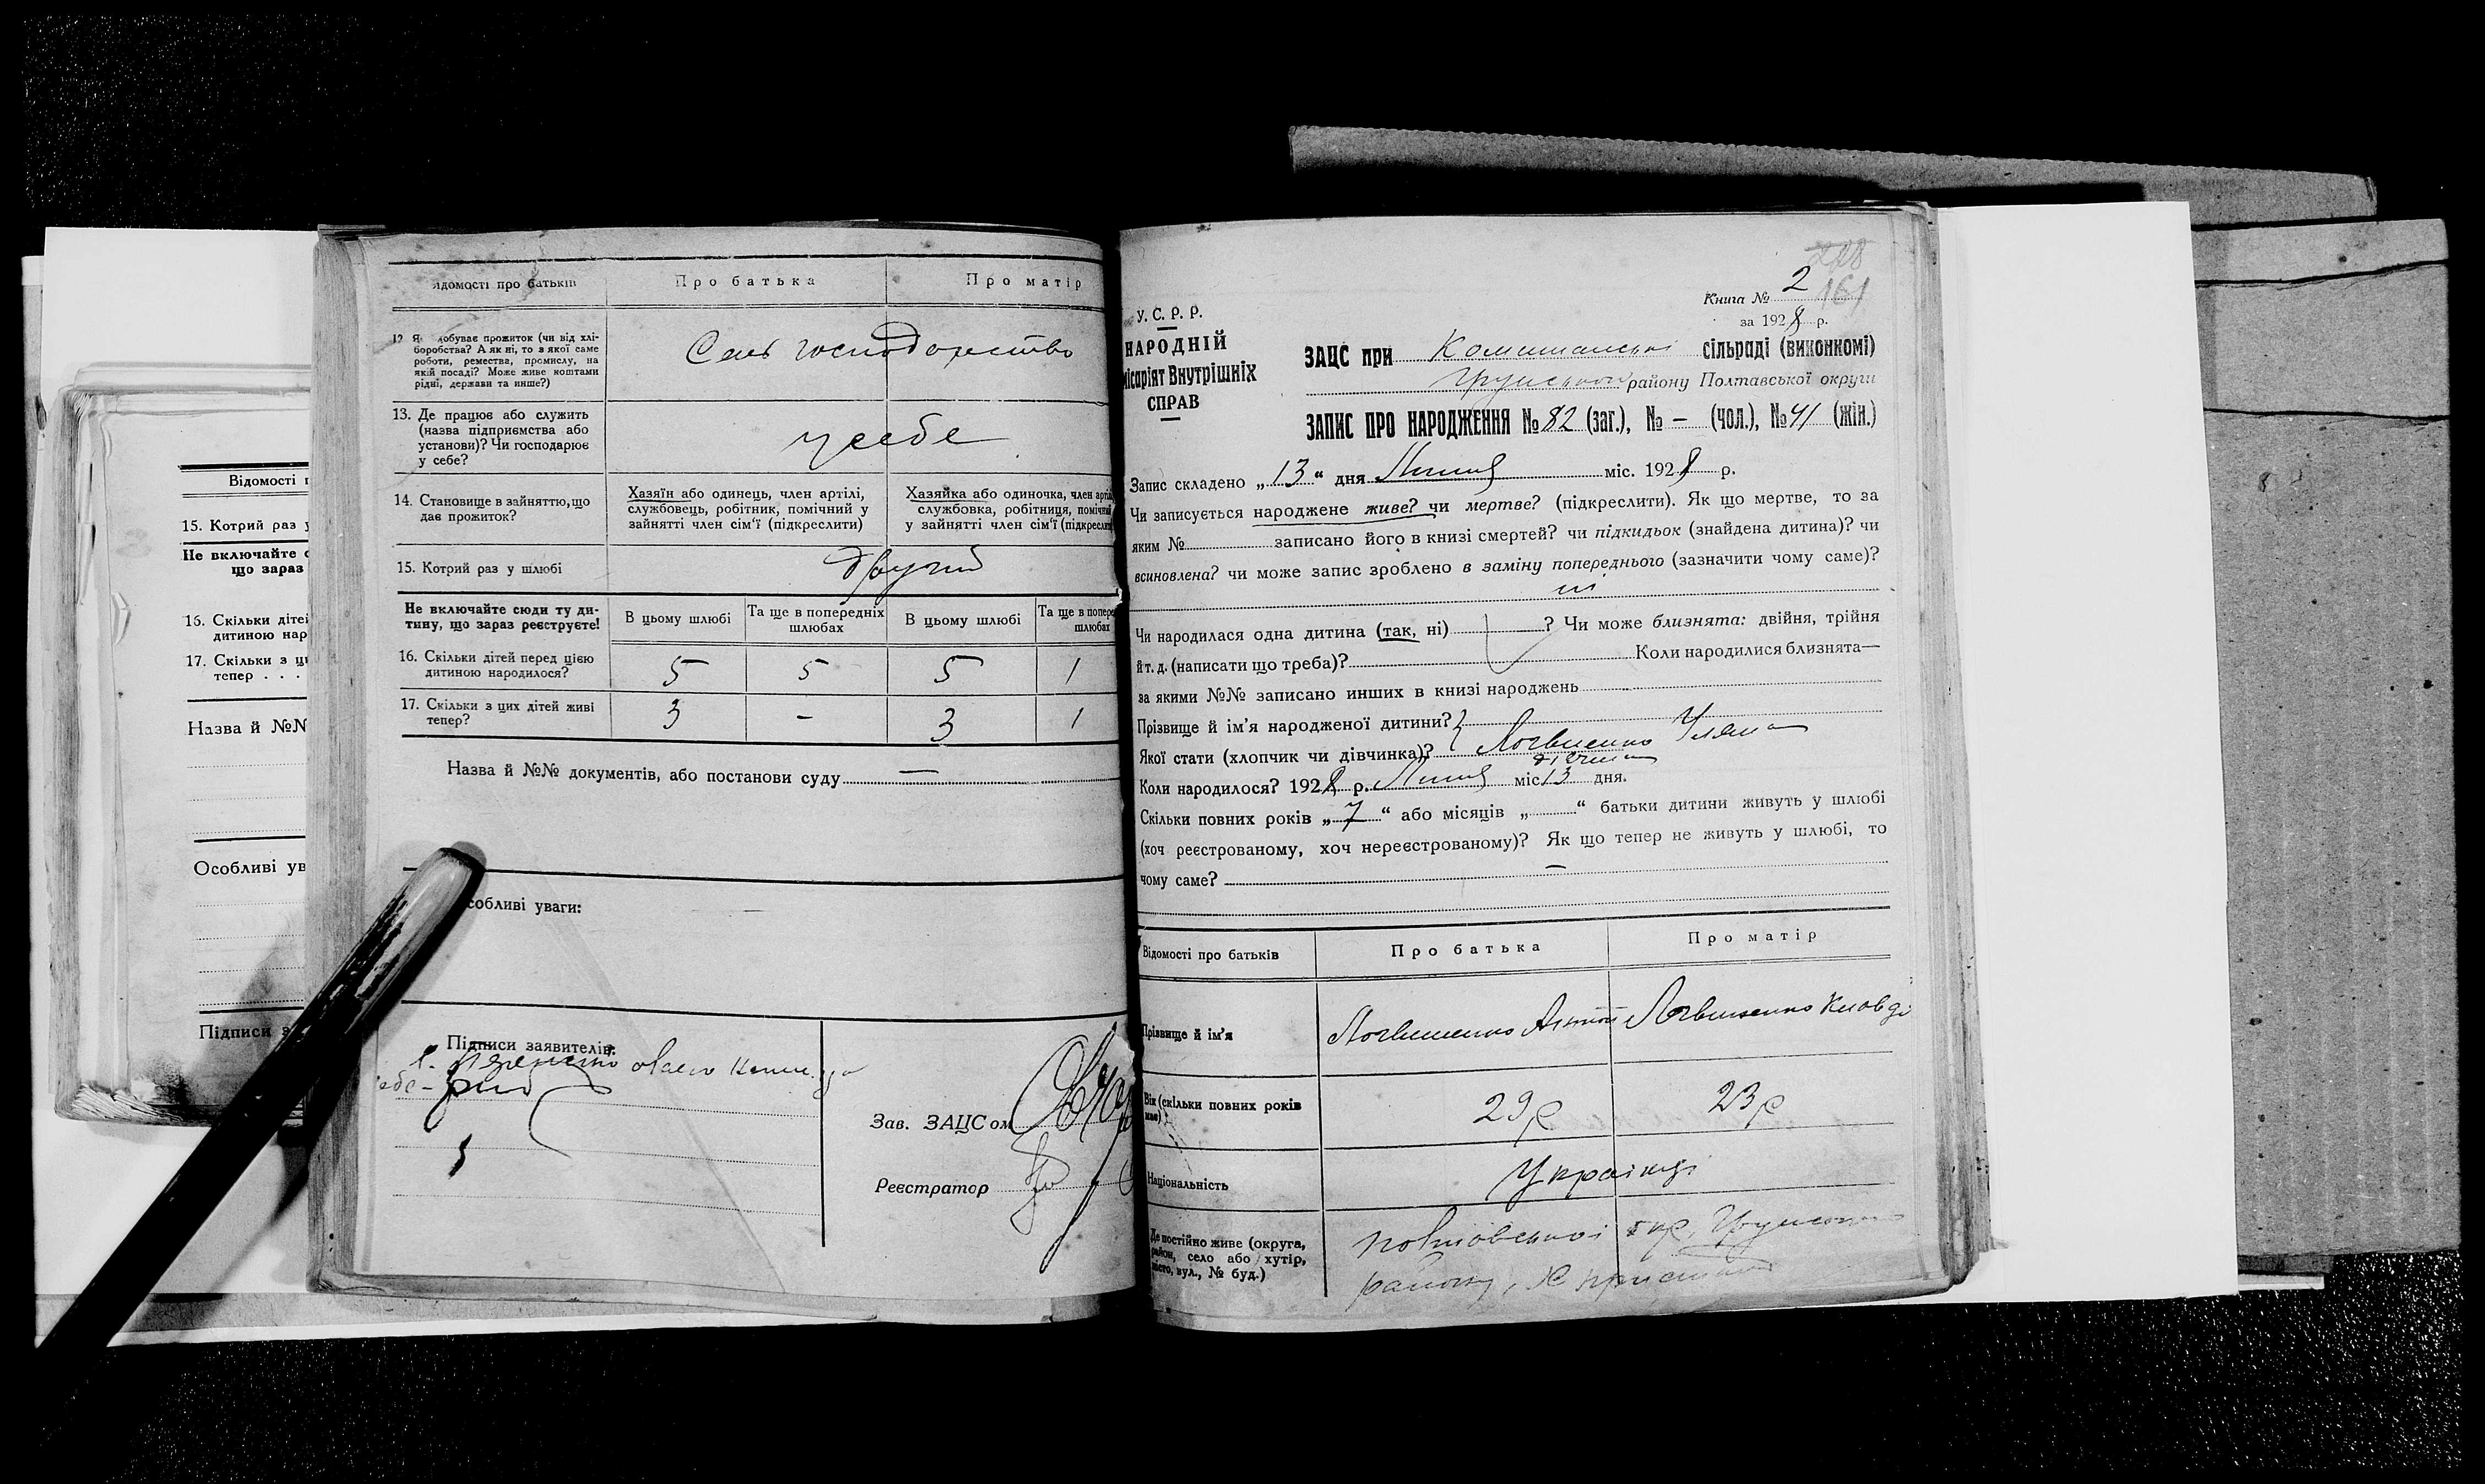 Відомості п
15. Котрий раз у
Не включайте с
що зараз
16. Скільки дітей
дитиною нар
17. Скільки з ци
тепер . . .
Назва й №№
Особливі ув
Підписи з
відомості про батьків
Про батька
Про матір
12 Як добуває прожиток (чи від хлі-
боробства? А як ні, то з якої саме
роботи, ремества, промислу, на
якій посаді? Може живе коштами
рідні, держави та инше?)
Сель господарство
13. Де працює або служить
(назва підприємства або
установи)? Чи господарює
у себе?
у себе
14. Становище в зайняттю, що
дає прожиток?
Хазяїн або одинець, член артілі,
службовець, робітник, помічний у
зайнятті член сім'ї (підкреслити)
Хазяйка або одиночка, член артіл
службовка, робітниця, помічний
у зайнятті член сім'ї (підкреслит
15. Котрий раз у шлюбі
другий
Не включайте сюди ту ди-
тину, що зараз реєструєте!
В цьому шлюбі
Та ще в попередніх
шлюбах
В цьому шлюбі
Та ще в попере
шлюбах
16. Скільки дітей перед цією
дитиною народилося?
5 5 5 1
17. Скільки з цих дітей живі
тепер?
3 - 3 1
Назва й №№ документів, або постанови суду —
собливі уваги:
Підписи заявителів:
Зав. ЗАЦС ом
Реєстратор
218
161
Книга № 2
за 1928 р.
У. С. Р. Р.
НАРОДНІЙ
місаріят Внутрішніх
СПРАВ
ЗАЦС при Комишанські сільраді (виконкомі)
Грунському району Полтавської округи
ЗАПИС ПРО НАРОДЖЕННЯ № 82 (заг.), № - (чол.), № 41 (жін.)
Запис складено „13" дня Липня міс. 1928 р.
Чи записується народжене живе? чи мертве? (підкреслити). Як що мертве, то за
яким № записано його в книзі смертей? чи підкидьок (знайдена дитина)? чи
всиновлена? чи може запис зроблено в заміну попереднього (зазначити чому саме)?
ні
Чи народилася одна дитина (так, ні) ? Чи може близнята: двійня, трійня
й т. д. (написати що треба)? Коли народилися близнята—
за якими №№ записано инших в книзі народжень
Прізвище й ім'я народженої дитини?
Логвиненко Уляна
Якої стати (хлопчик чи дівчинка)?
дівчина
Коли народилося? 1928 р. Липня міс 13 дня.
Скільки повних років „7" або місяців „ " батьки дитини живуть у шлюбі
(хоч реєстрованому, хоч нереєстрованому)? Як що тепер не живуть у шлюбі, то
чому саме? —
Відомості про батьків
Про батька
Про матір
Прізвище й ім'я
Логвиненко Антон
Логвиненко Кловді
Вік (скільки повних років
має)
29 р
23 р
Національність
Українці
Де постійно живе (округа,
район, село або хутір,
місто, вул., № буд.)
Полтавської окр, Грунського
району, Х